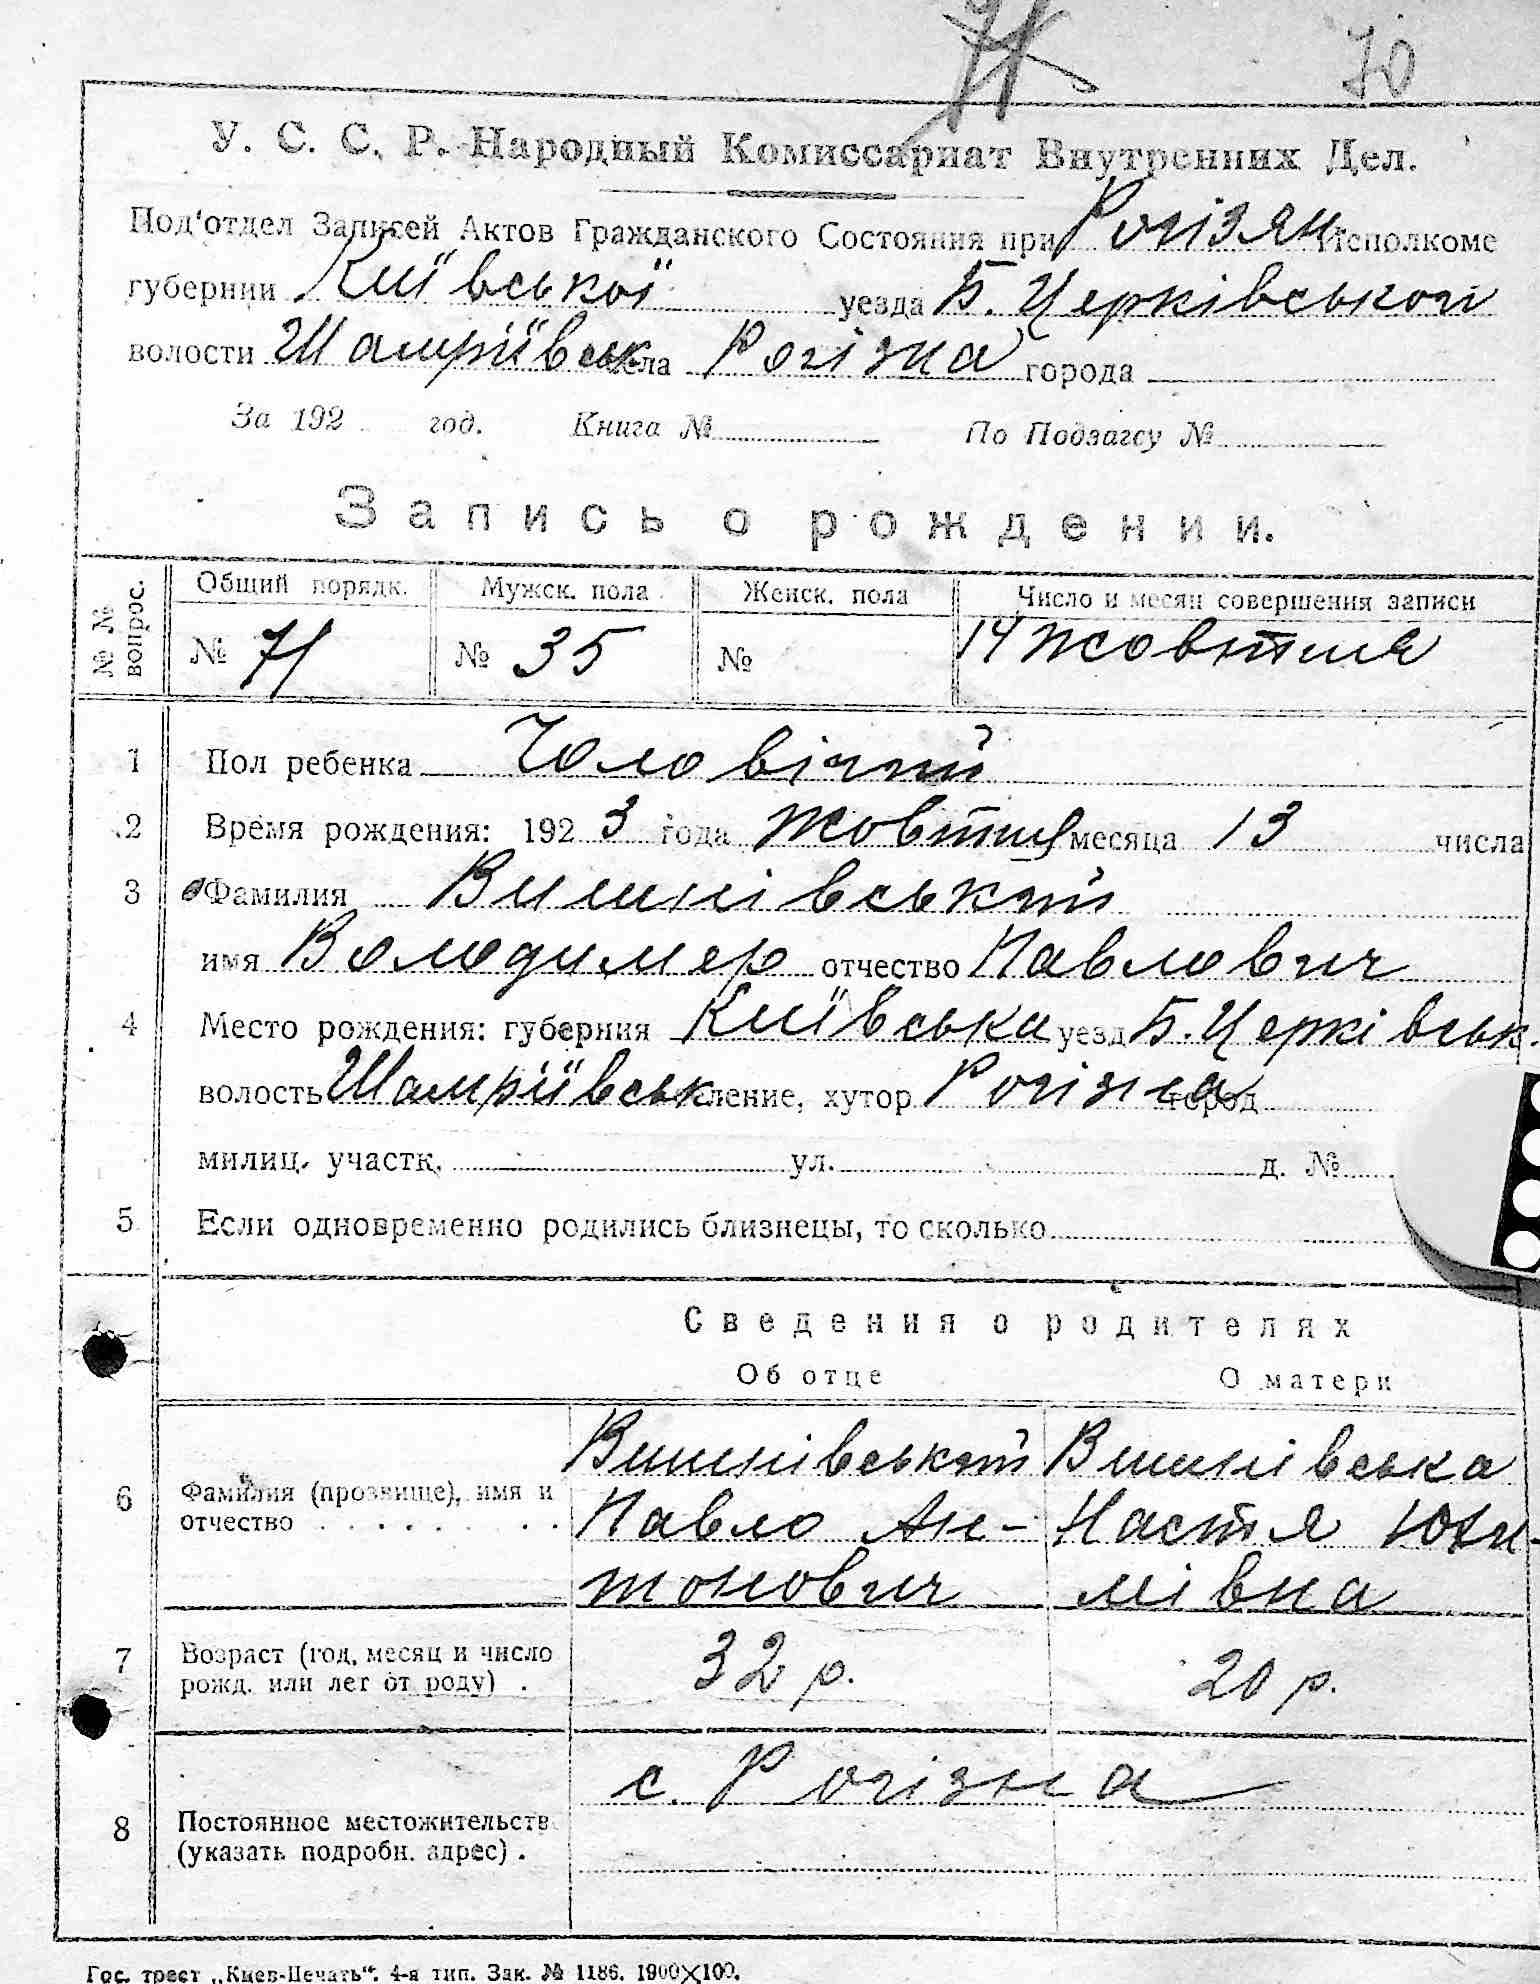 71 70
У. С. С. Р. Народный Комиссариат Внутренних Дел.
Под'отдел Записей Актов Гражданского Состояния при Рогізян. Исполкоме
губернии Київської уезда Б. Церківського
волости Шамріївськ села Рогізна города
За 192 год. Книга № По Подзагсу №
Запись о рождении.
№ № вопрос. Общий порядк. Мужск. пола Женск. пола Число и месяц совершения записи
№ 71 № 35 № 14 Жовтня
1 Пол ребенка Чоловічий
2 Время рождения: 1923 года Жовтня месяца 13 числа
3 Фамилия Вишнівський
имя Володимер отчество Павлович
4 Место рождения: губерния Київська уезд Б. Церківськ.
волость Шамріївськ селение, хутор Рогізна город
милиц. участк. ул. д. №
5 Если одновременно родились близнецы, то сколько
Сведения о родителях
Об отце О матери
Вишнівський Вишнівська
6 Фамилия (прозвище), имя и отчество Павло Ан- Настя Юхи-
тонович мівна
7 Возраст (год, месяц и число рожд. или лет от роду) . 32 р. 20 р.
с. Рогізна
8 Постоянное местожительств
(указать подробн. адрес) .
Гос. трест „Киев-Печать“. 4-я тип. Зак. № 1186. 1900×100.